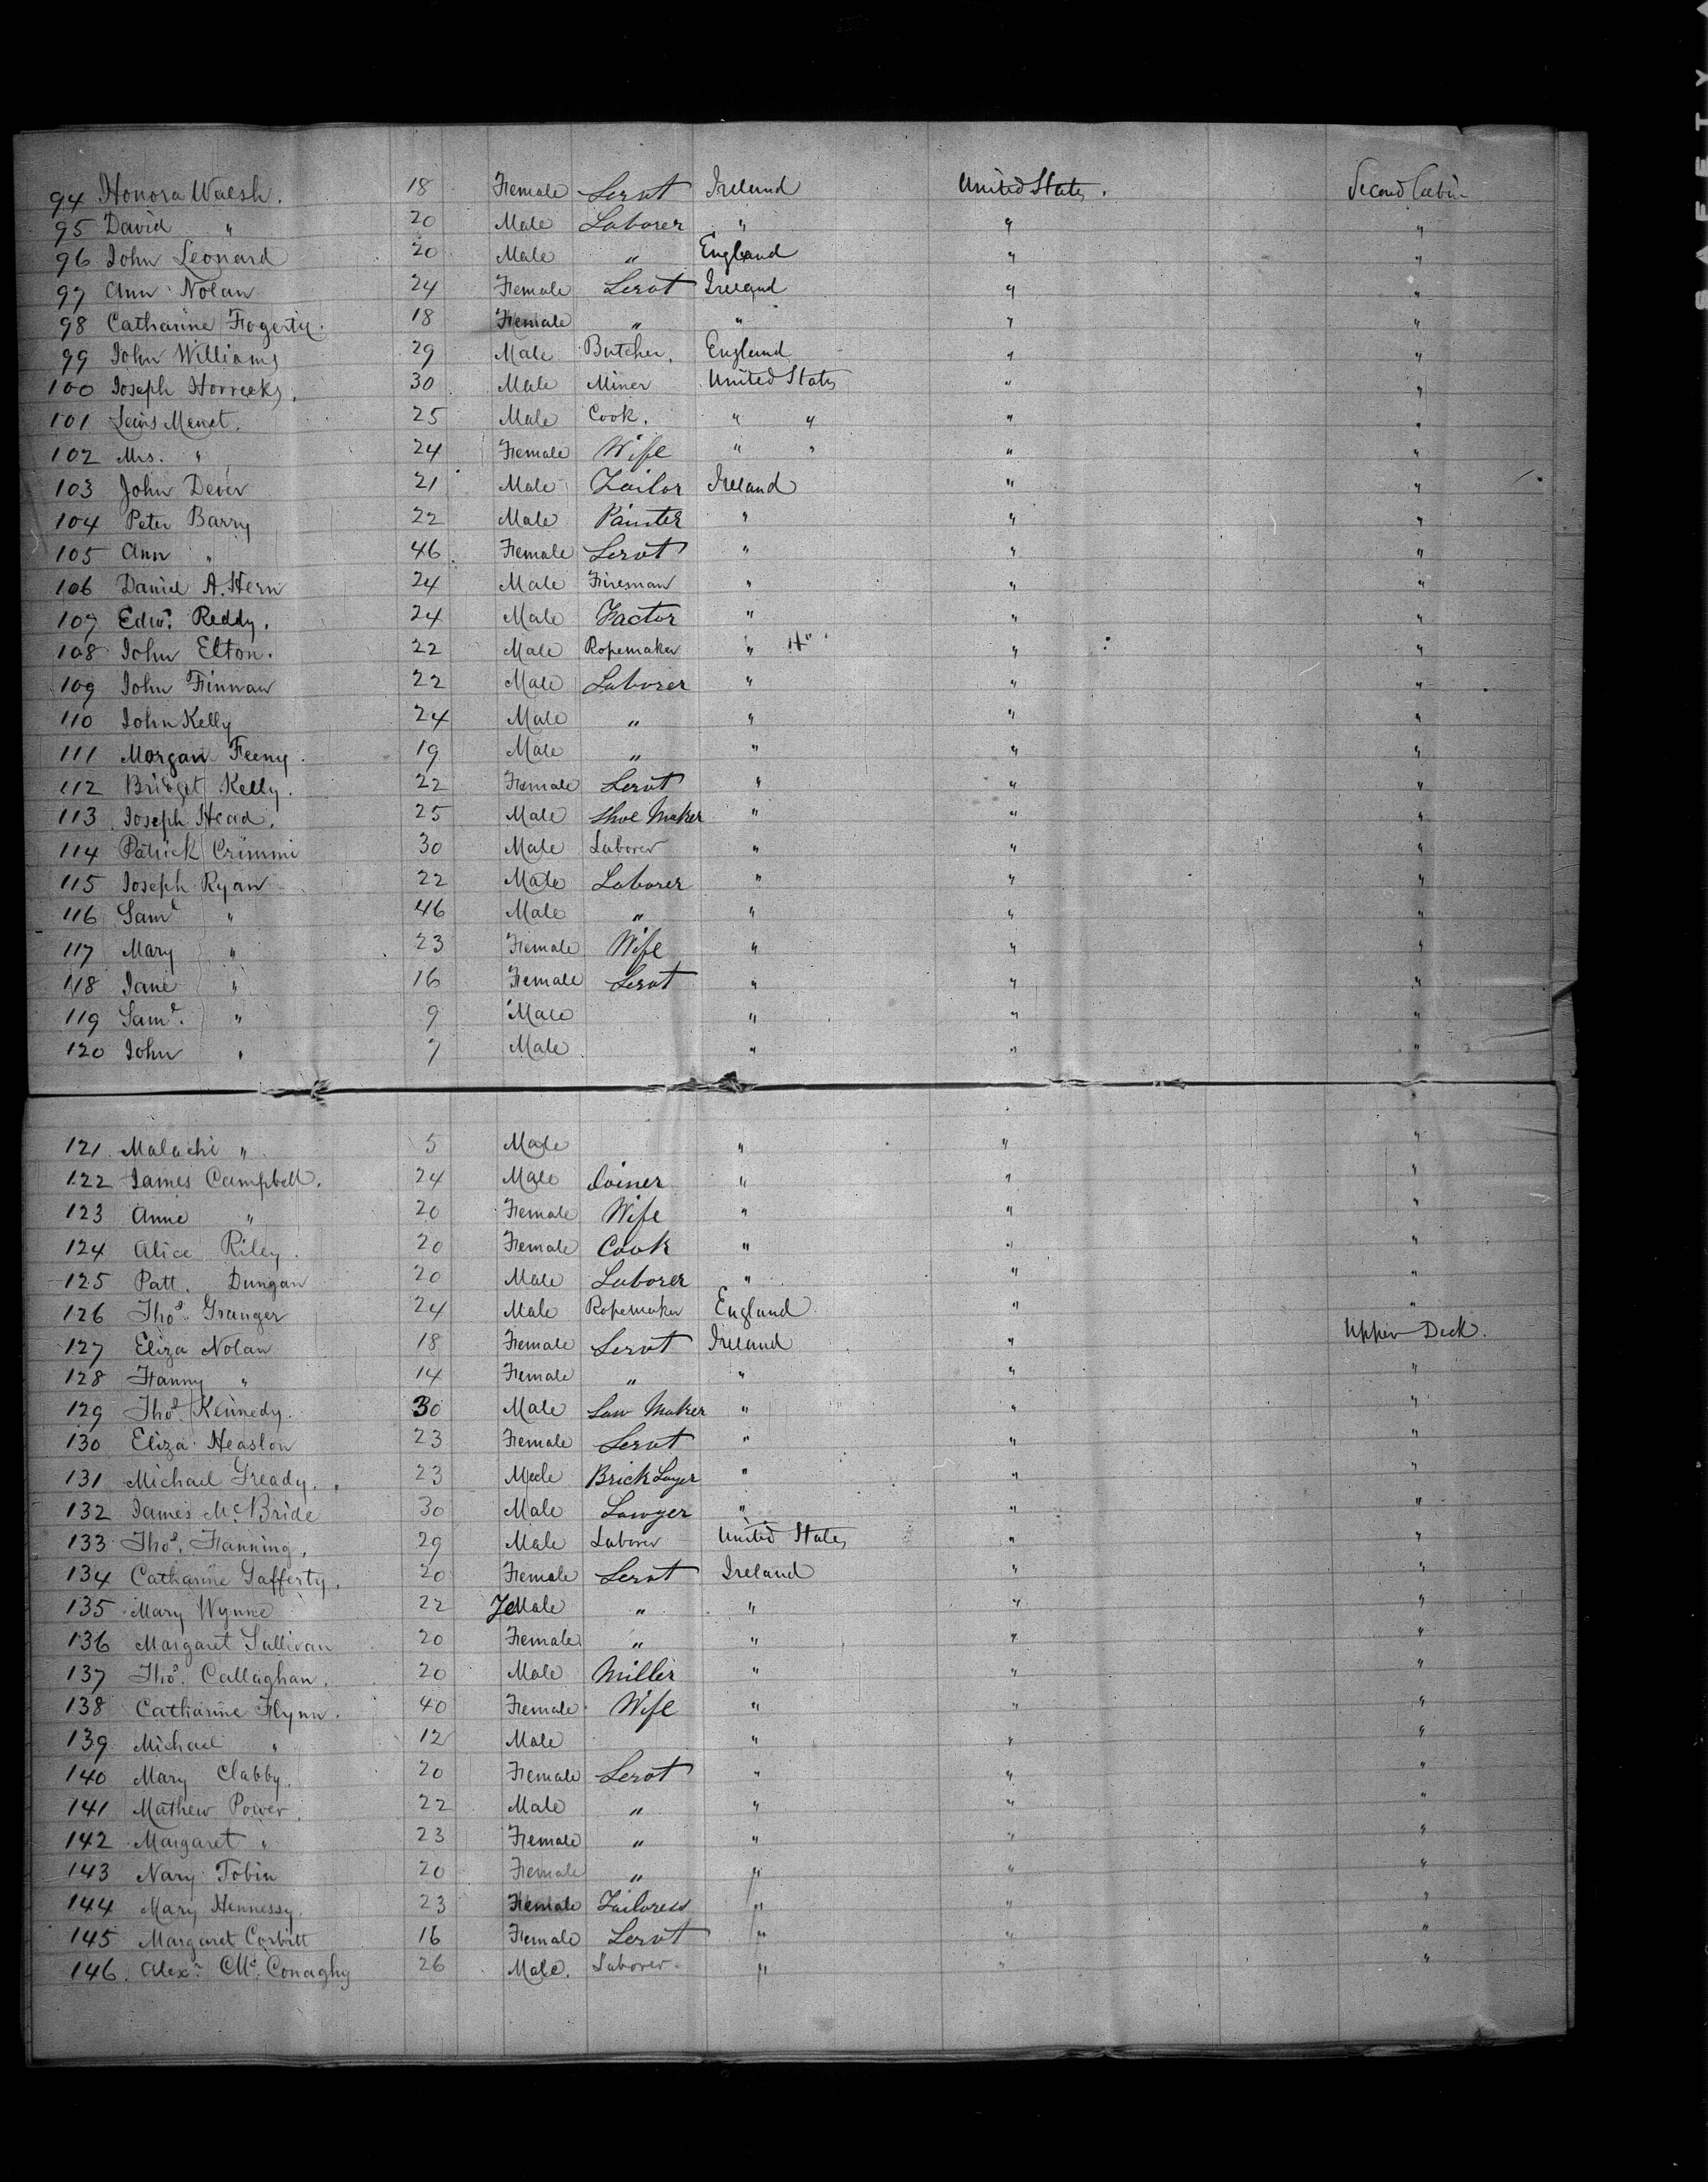 94 Honora Walsh. 18 Female Servt Ireland United States. Second Cabin
95 David " 20 Male Laborer " " "
96 John Leonard 20 Male " England " "
97 Ann Nolan 24 Female Servt Ireland " "
98 Catharine Fogerty. 18 Female " " " "
99 John Williams 29 Male Butcher. England " "
100 Joseph Horrocks. 30 Male Miner United States " "
101 Lewis Menet. 25 Male Cook. " " " "
102 Mrs. " 24 Female Wife " " " "
103 John Dever 21 Male Tailor Ireland " "
104 Peter Barry 22 Male Painter " " "
105 Ann " 46 Female Servt " " "
106 Daniel A. Hern 24 Male Fireman " " "
107 Edwd. Reddy. 24 Male Factor " " "
108 John Elton. 22 Male Ropemaker " " "
109 John Finnan 22 Male Laborer " " "
110 John Kelly 24 Male " " " "
111 Morgan Feeny. 19 Male " " " "
112 Bridget Kelly. 22 Female Servt " " "
113 Joseph Head. 25 Male Shoe Maker " " "
114 Patrick Crimmi 30 Male Laborer " " "
115 Joseph Ryan 22 Male Laborer " " "
116 Saml " 46 Male " " " "
117 Mary " 23 Female Wife " " "
118 Jane " 16 Female Servt " " "
119 Saml. " 9 Male " " "
120 John " 7 Male " " "
121 Malachi " 5 Male " " "
122 James Campbell. 24 Male Joiner " " "
123 Anne " 20 Female Wife " " "
124 Alice Riley. 20 Female Cook " " "
125 Patt. Dungan 20 Male Laborer " " "
126 Thos. Granger 24 Male Ropemaker England " "
127 Eliza Nolan 18 Female Servt Ireland " Upper Deck.
128 Fanny " 14 Female " " " "
129 Thos. Kennedy. 30 Male Saw Maker " " "
130 Eliza Heaslon 23 Female Servt " " "
131 Michael Gready. 23 Male Brick Layer " " "
132 James McBride 30 Male Sawyer " " "
133 Thos. Fanning. 29 Male Laborer United States " "
134 Catharine Gafferty. 20 Female Servt Ireland " "
135 Mary Wynne 22 FeMale " " " "
136 Margaret Sullivan 20 Female " " " "
137 Thos. Callaghan. 20 Male Miller " " "
138 Catharine Flynn. 40 Female Wife " " "
139 Michael " 12 Male " " "
140 Mary Clabby. 20 Female Servt " " "
141 Mathew Power. 22 Male " " " "
142 Margaret " 23 Female " " " "
143 Nary Tobin 20 Female " " " "
144 Mary Hennessy. 23 Female Tailoress " " "
145 Margaret Corbitt 16 Female Servt " " "
146. Alexr. McConaghy 26 Male. Laborer " " "